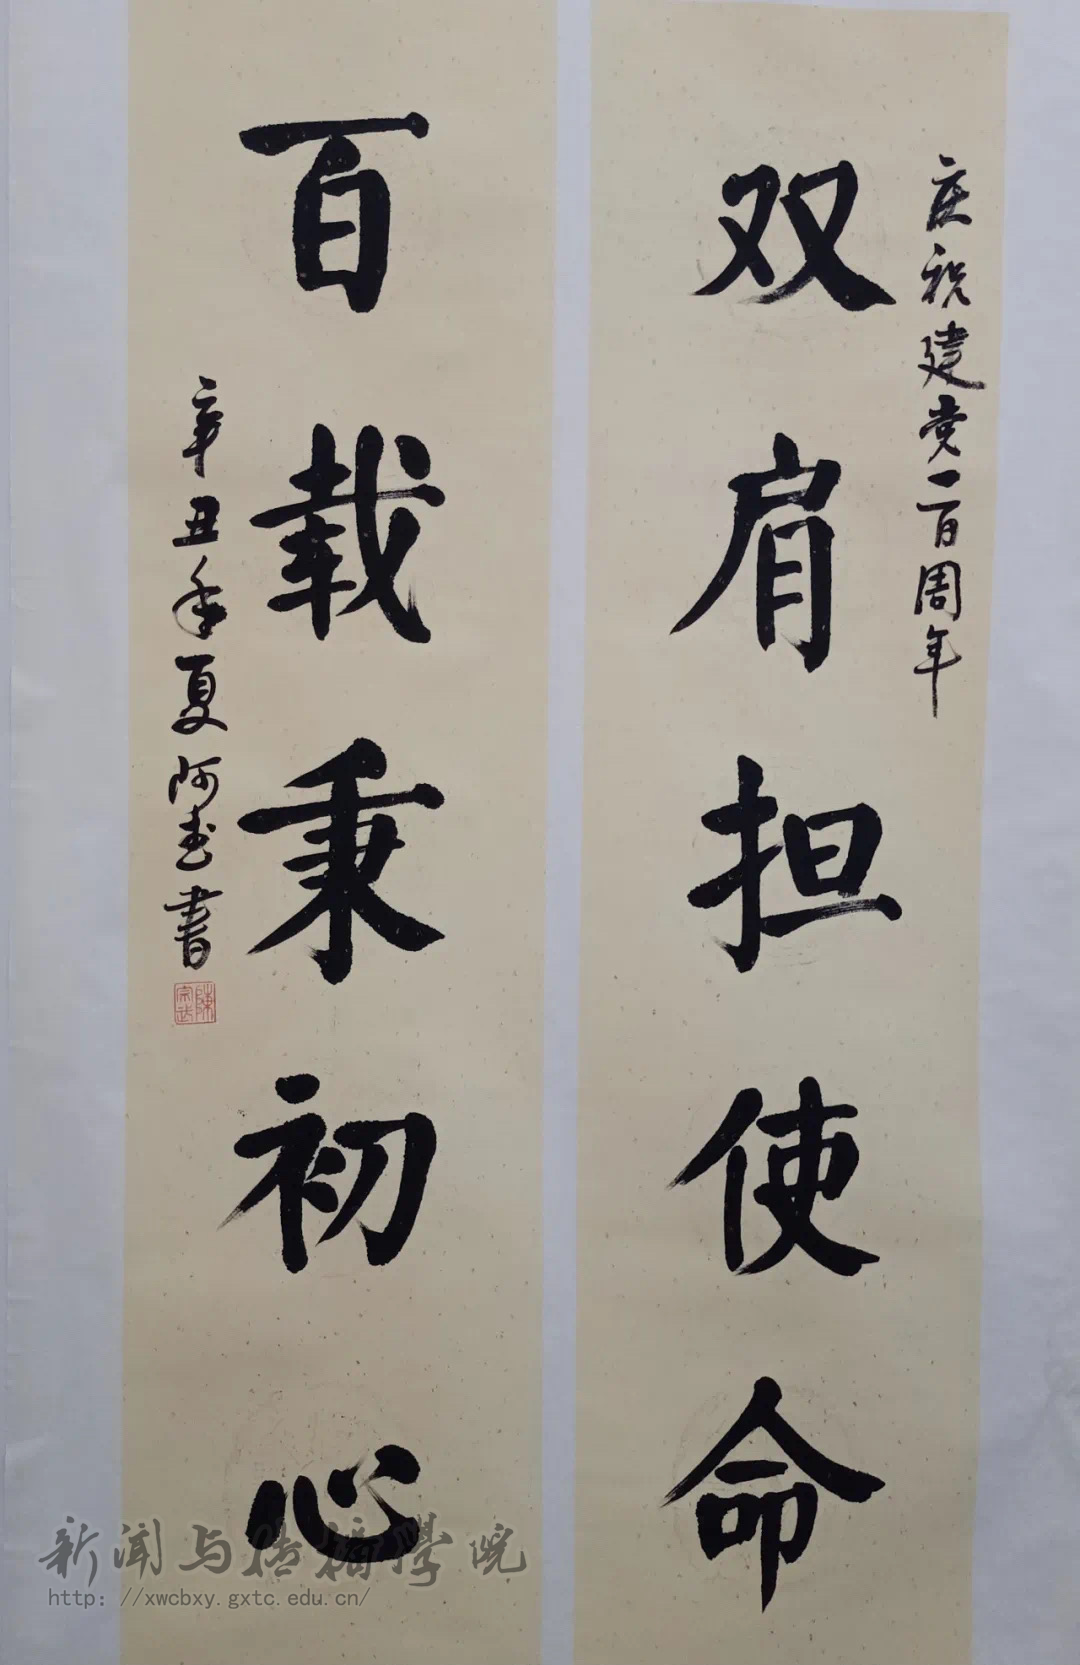 庆祝建党一百周年
双肩担使命
百载秉初心
辛丑年夏阿武書
陳宗武
新闻与传播學院
http：//xwcbxy.gxtc.edu.cn/